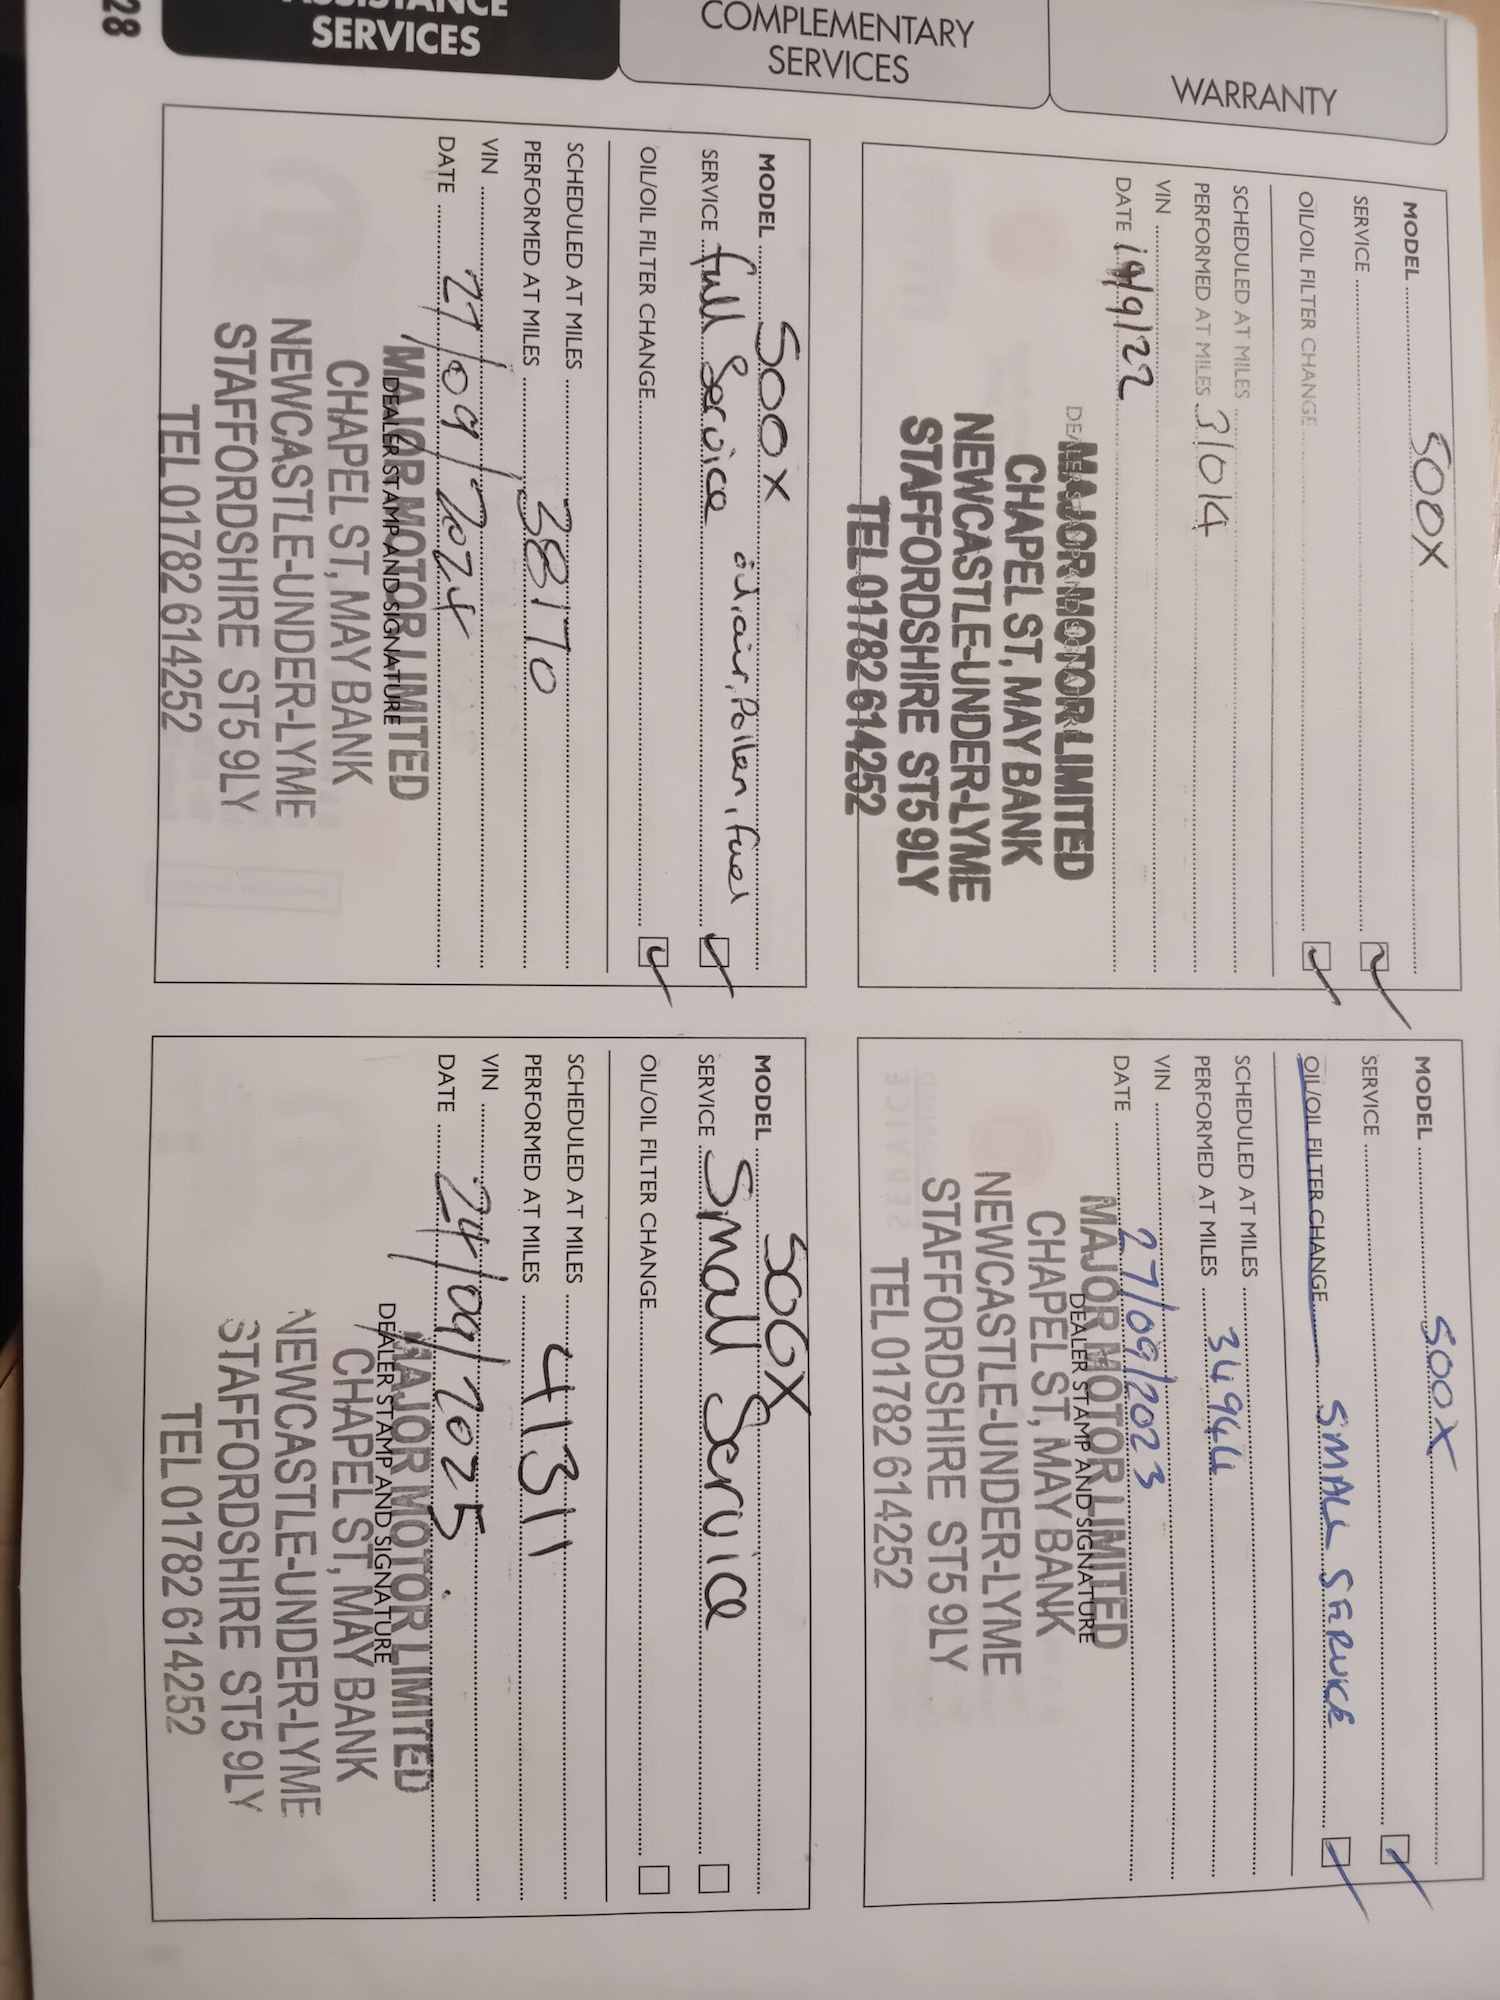 28
ASSISTANCE
SERVICES
COMPLEMENTARY
SERVICES
WARRANTY
MODEL 500X
SERVICE
OIL/OIL FILTER CHANGE
SCHEDULED AT MILES
PERFORMED AT MILES 31014
VIN
DATE 19/9/22
DEALER STAMP AND SIGNATURE
MAJOR MOTOR LIMITED
CHAPEL ST, MAY BANK
NEWCASTLE-UNDER-LYME
STAFFORDSHIRE ST5 9LY
TEL 01782 614252
MODEL 500X
SERVICE
OIL/OIL FILTER CHANGE SMALL SERVICE
SCHEDULED AT MILES
PERFORMED AT MILES 34944
VIN
DATE 27/09/2023
DEALER STAMP AND SIGNATURE
MAJOR MOTOR LIMITED
CHAPEL ST, MAY BANK
NEWCASTLE-UNDER-LYME
STAFFORDSHIRE ST5 9LY
TEL 01782 614252
MODEL 500X
oil, air, Pollen, Fuel
SERVICE full Service
OIL/OIL FILTER CHANGE
SCHEDULED AT MILES
PERFORMED AT MILES 38170
VIN
DATE 27/09/2024
DEALER STAMP AND SIGNATURE
MAJOR MOTOR LIMITED
CHAPEL ST, MAY BANK
NEWCASTLE-UNDER-LYME
STAFFORDSHIRE ST5 9LY
TEL 01782 614252
MODEL 500X
SERVICE Small Service
OIL/OIL FILTER CHANGE
SCHEDULED AT MILES
PERFORMED AT MILES 41311
VIN
DATE 24/09/2025.
DEALER STAMP AND SIGNATURE
MAJOR MOTOR LIMITED
CHAPEL ST, MAY BANK
NEWCASTLE-UNDER-LYME
STAFFORDSHIRE ST5 9LY
TEL 01782 614252